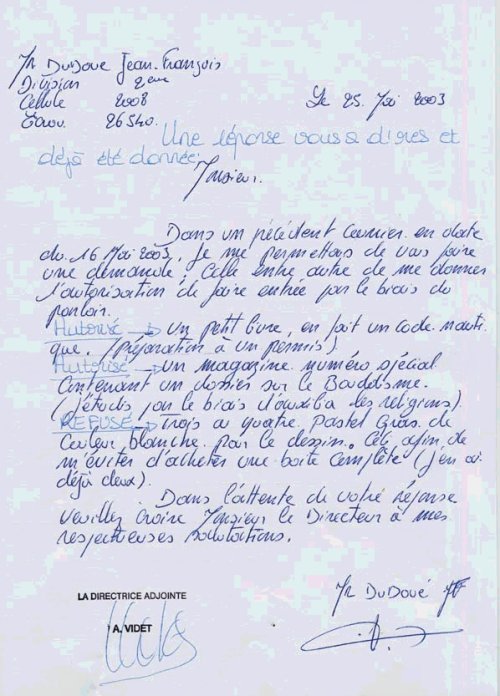 Mr DuDoué Jean-François
Division 2eme
Cellule 2008
Ecrou. 26540.
Le 25. Mai 2003
Une réponse vous a d'ores et
déjà été donnée.
Monsieur.
Dans un précédent courrier en date
du 16 Mai 2003, Je me permettais de vous faire
une demande: Celle entre autre de me donner
l'autorisation de faire entrée par le biais du
parloir.
Autorisé → un petit livre, en fait un code nauti-
que. (préparation à un permis)
Autorisé → un magazine numéro spécial
Contenant un dossier sur le Bouddisme.
(J'étudis par le biais d'auxilia les religions).
REFUSÉ → Trois ou quatre Pastel Gras de
Couleur blanche pour le dessin. Celà afin de
m'éviter d'acheter une boite Complète (J'en ai
déjà deux).
Dans l'attente de votre Réponse
Veuillez Croire Monsieur le Directeur à mes
respectueuses salutations.
LA DIRECTRICE ADJOINTE
A. VIDET
Mr DuDoué JF